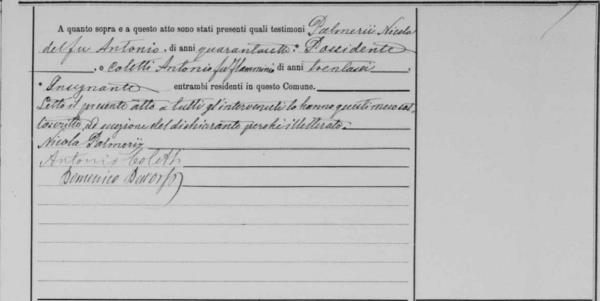 A quanto sopra e a questo atto sono stati presenti quali testimoni Palmerii Nicola
del fu Antonio, di anni quarantasette, Possidente
, e Coletti Antonio fu Flaminio di anni trentasei
Insegnante entrambi residenti in questo Comune.
Letto il presente atto a tutti gl'intervenuti lo hanno questi meco sot-
toscritto, ad eccezione del dichiarante perchè illetterato.
Nicola Palmerij
Antonio Coletti
Domenico